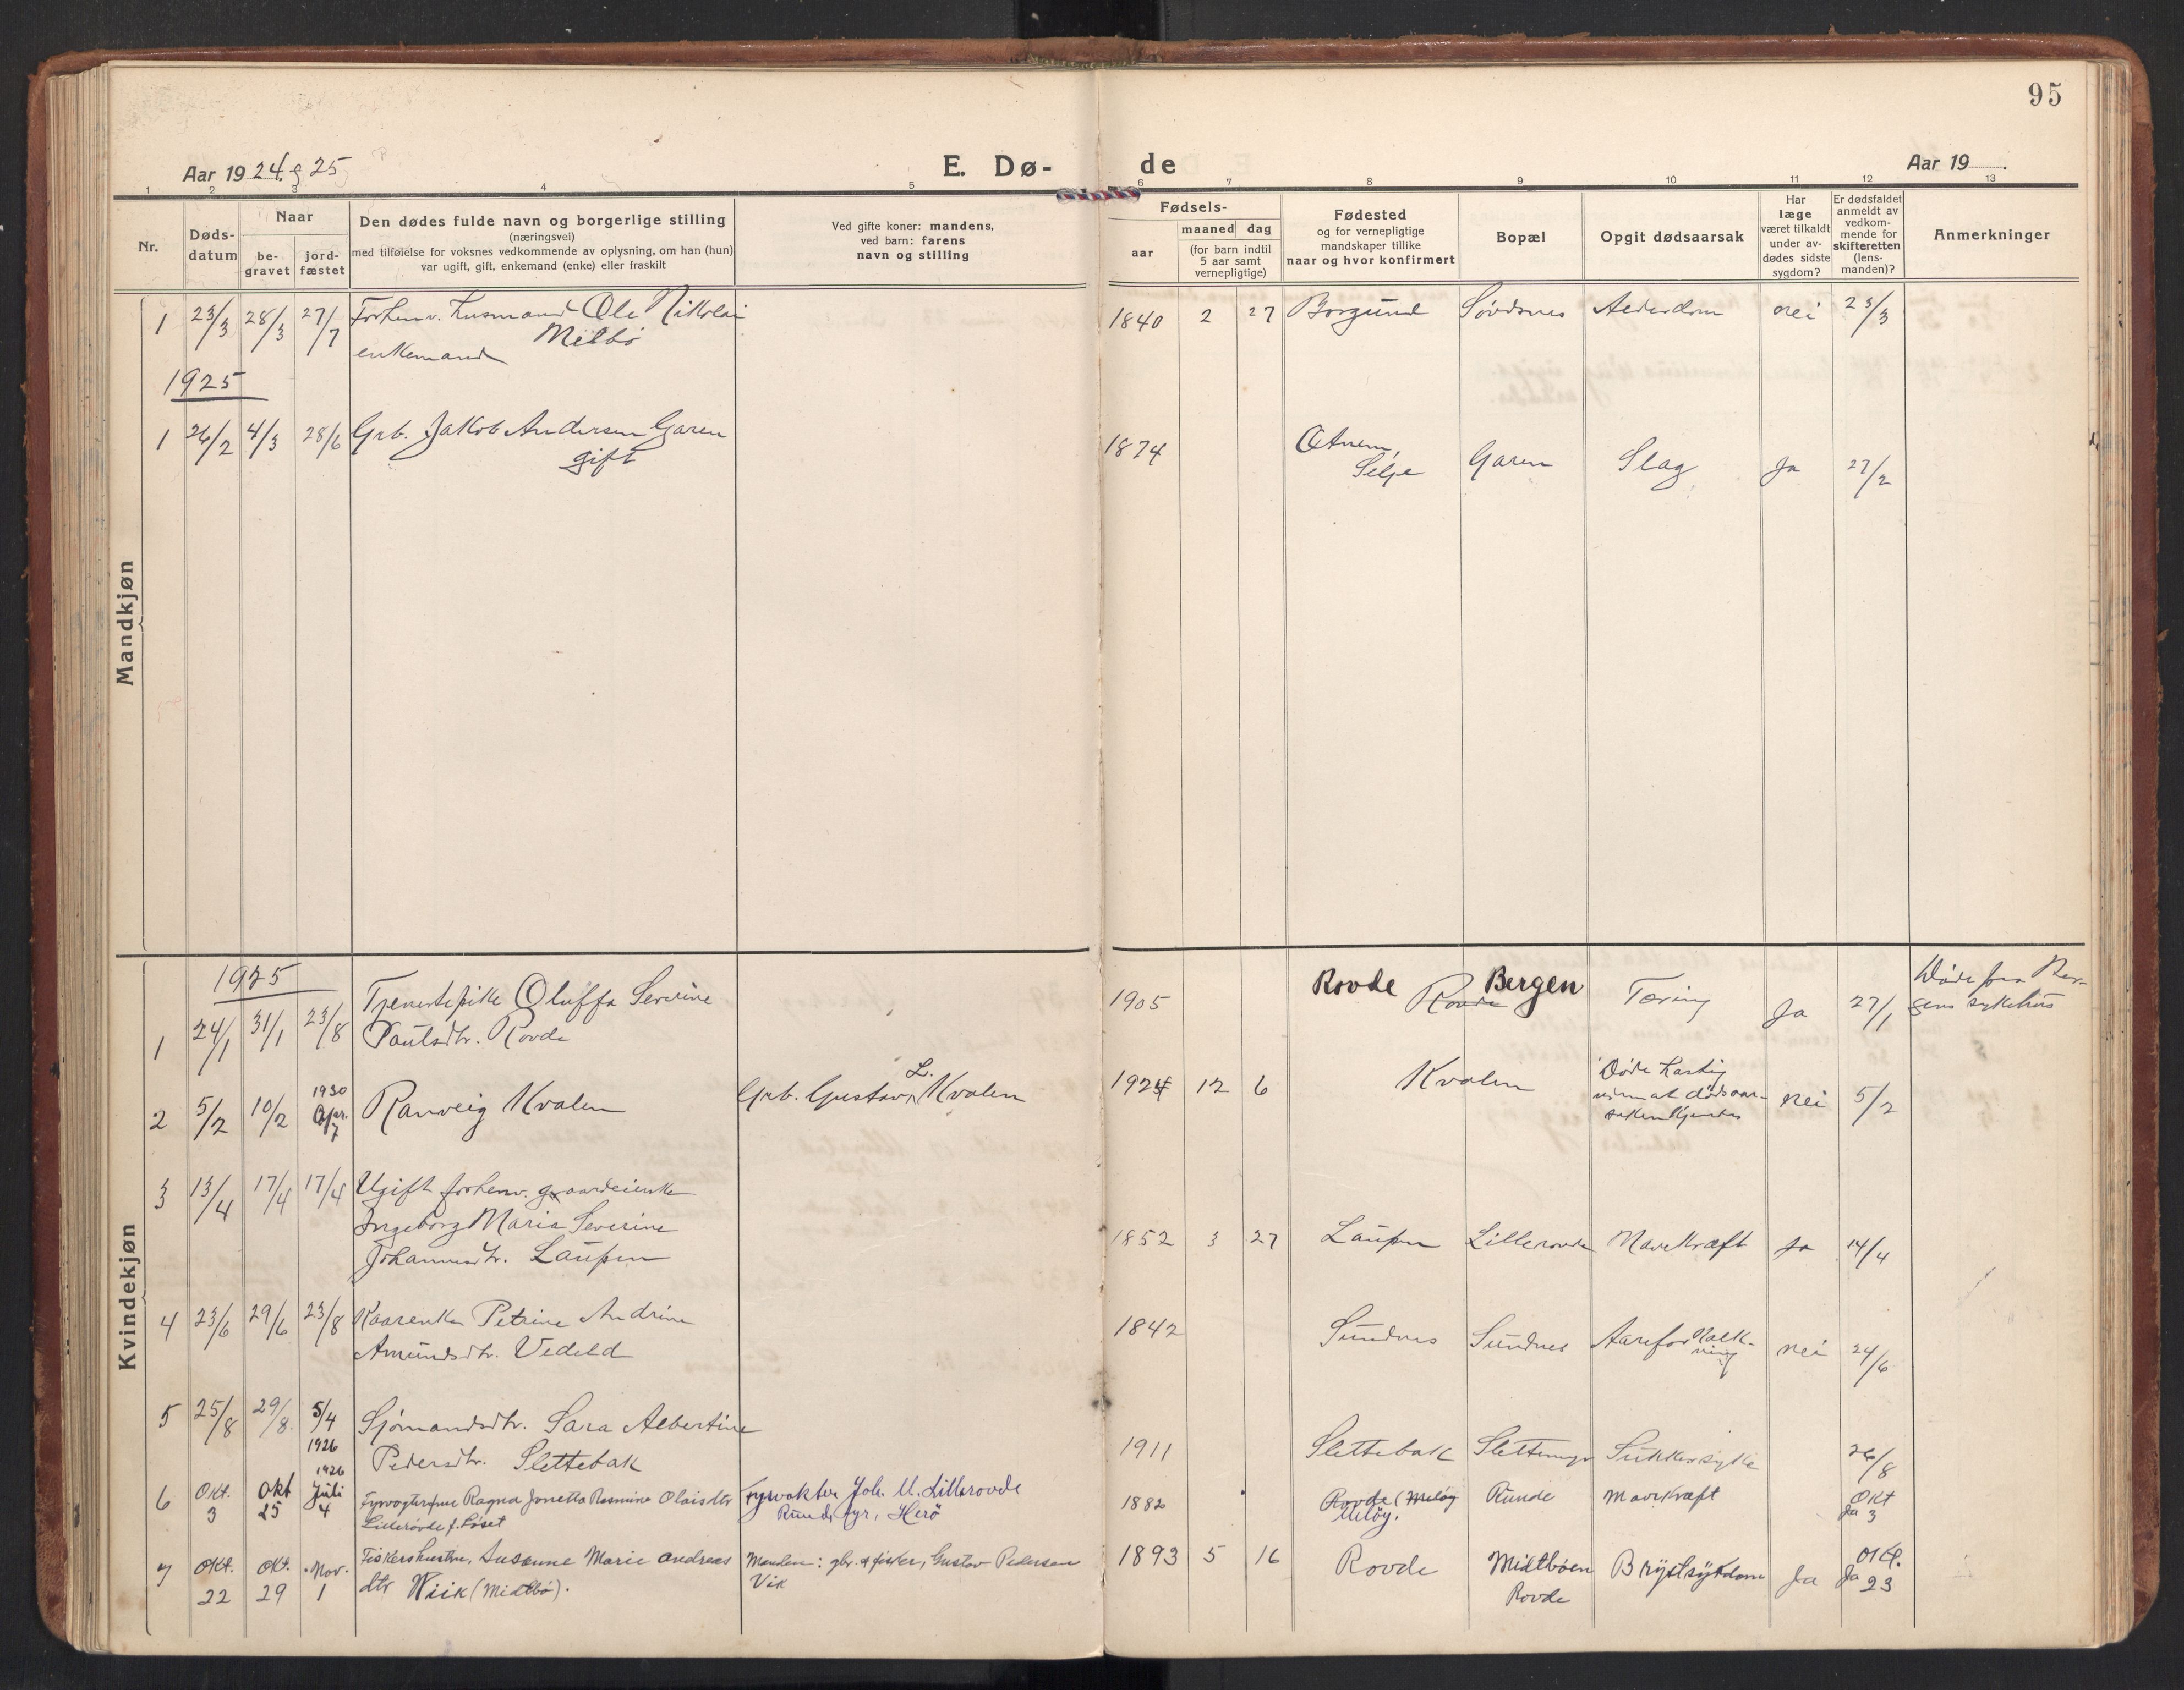 95
Aar 1924 & 25
E. Dø-
de
Aar 19 .
1 2 3 4 5 6 7 8 9 10 11 12 13
Nr.
Døds-
datum
Naar
be-
gravet
jord-
fæstet
Den dødes fulde navn og borgerlige stilling
(næringsvei)
med tilføielse for voksnes vedkommende av oplysning, om han (hun)
var ugift, gift, enkemand (enke) eller fraskilt
Ved gifte koner: mandens,
ved barn: farens
navn og stilling
Fødsels-
aar
maaned dag
(for barn indtil
5 aar samt
vernepligtige)
Fødested
og for vernepligtige
mandskaper tillike
naar og hvor konfirmert
Bopæl
Opgit dødsaarsak
Har
læge
været tilkaldt
under av-
dødes sidste
sygdom?
Er dødsfaldet
anmeldt av
vedkom-
mende for
skifteretten
(lens-
manden)?
Anmerkninger
Mandkjøn
1 23/3 28/3 27/7 Forhenv. husmand Ole Nikolai
Melbö
enkemand
1840 2 27 Borgund Søvdsnes Alderdom nei 23/3
1925
1 26/2 4/3 28/6 Grb. Jakob Andersen Garen
gift
1874 Selje Garen Slag Ja 27/2
Kvindekjøn
1925
1 24/1 31/1 23/8 Tjenestepike Oluffa Severine
Paulsdtr. Rovde
1905 Rovde Rovde Bergen Tæring Ja 27/1 Døde paa Ber-
gens sykehus
2 5/2 10/2 1930 Apr. 7 Ranveig Kvalen
Grb. Gustav L. Kvalen
1924 12 6 Kvalen Døde hastig
uten at dødsaar-
saken kjendes
nei 5/2
3 13/4 17/4 17/4 Ugift forhenv. gaardeierske
Ingeborg Maria Severine
Johannesdtr. Laupen
1852 3 27 Laupen Lillerovde Mavekræft Ja 14/4
4 23/6 29/6 23/8 Kaarenke Petrine Andrine
Amundsdtr. Vedeld
1842 Sundnes Sundnes Aareforkalk-
ning
nei 24/6
5 25/8 29/8 5/4 1926 Sjømandsdtr. Sara Albertine
Pedersdtr. Slettebak
1911 Slettebak Sukkersyke 26/8
6 Okt. 3 Okt 25 1926 Juli 4 Fyrvogterfrue Ragna Jonetta Rasmine Olaisdtr
Lillerovde f. Løset
Fyrvokter Joh. M. Lillerovde
Runde fyr, Herö
1882 Rovde (Meløy
Meløy.
Runde Mavekræft Okt
Ja 3
7 Okt. 22 Okt. 29 Nov. 1 Fiskershustru, Susanne Marie Andreas
dtr Wiik (Midtbö).
Manden: gbr. & fisker, Gustav Pedersen
Vik
1893 5 16 Rovde Midtbøen
Rovde
Brystsykdom Ja Okt.
Ja 23